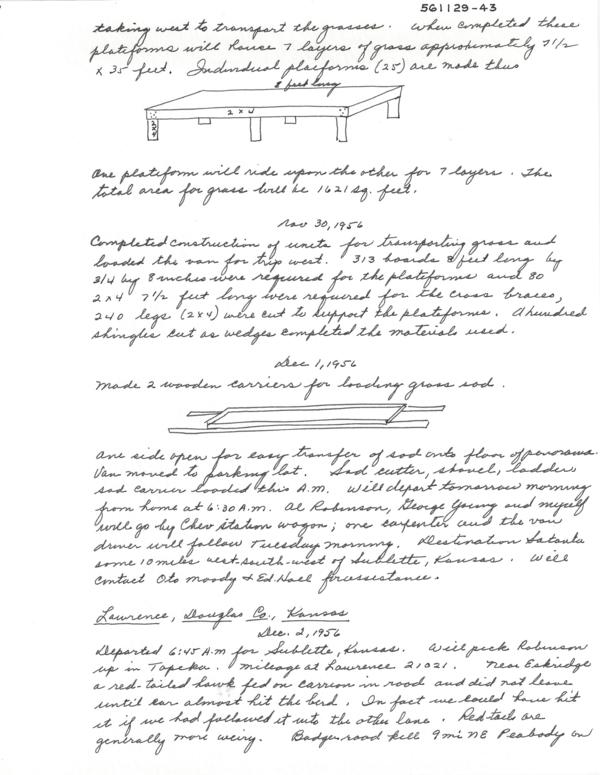 561129-43
taking west to transport the grasses. When completed these
plateforms will house 7 layers of grass approximately 7 1/2
x 35 feet. Individual plateforms (25) are made thus
8 feet long
2 x 4
2x4
One plateform will ride upon the other for 7 layers. The
total area for grass will be 1621 sq. feet.
Nov 30, 1956
Completed construction of units for transporting grass and
loaded the van for trip west. 313 boards 8 feet long by
3/4 by 8 inches were required for the plateforms and 80
2x4 7 1/2 feet long were required for the cross braces,
240 legs (2x4) were cut to support the plateforms. A hundred
shingles cut as wedges completed the materials used.
Dec 1, 1956
Made 2 wooden carriers for loading grass sod.
One side open for easy transfer of sod onto floor of panorama.
Van moved to parking lot. Sod cutter, shovel, ladder
sod carrier loaded this A.M. Will depart tomorrow morning
from home at 6:30 A.M. Al Robinson, George Young and myself
will go by Chev station wagon; one carpenter and the van
driver will follow Tuesday morning. Destination Satanta
some 10 miles west-south-west of Sublette, Kansas. Will
contact Oto Moody & Ed Hall for assistance.
Lawrence, Douglas Co., Kansas
Dec. 2, 1956
Departed 6:45 A.M for Sublette, Kansas. Will pick Robinson
up in Topeka. Mileage at Lawrence 21021. Near Eskridge
a red-tailed hawk fed on carrion in road and did not leave
until car almost hit the bird. In fact we could have hit
it if we had followed it into the other lane. Redtails are
generally more weiry. Badger road kill 9 mi NE Peabody on